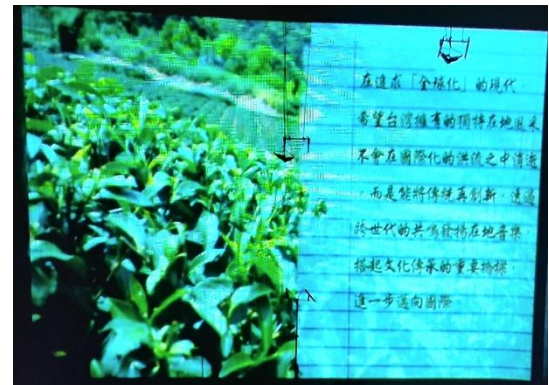 在追求「全球化」的現代
希望台灣擁有的獨特在地風采
不會在國際化的洪流之中消逝
,而是能將傳統再創新,透過
跨世代的共鳴發揚在地音樂
搭起文化傳承的重要橋樑
進一步邁向國際